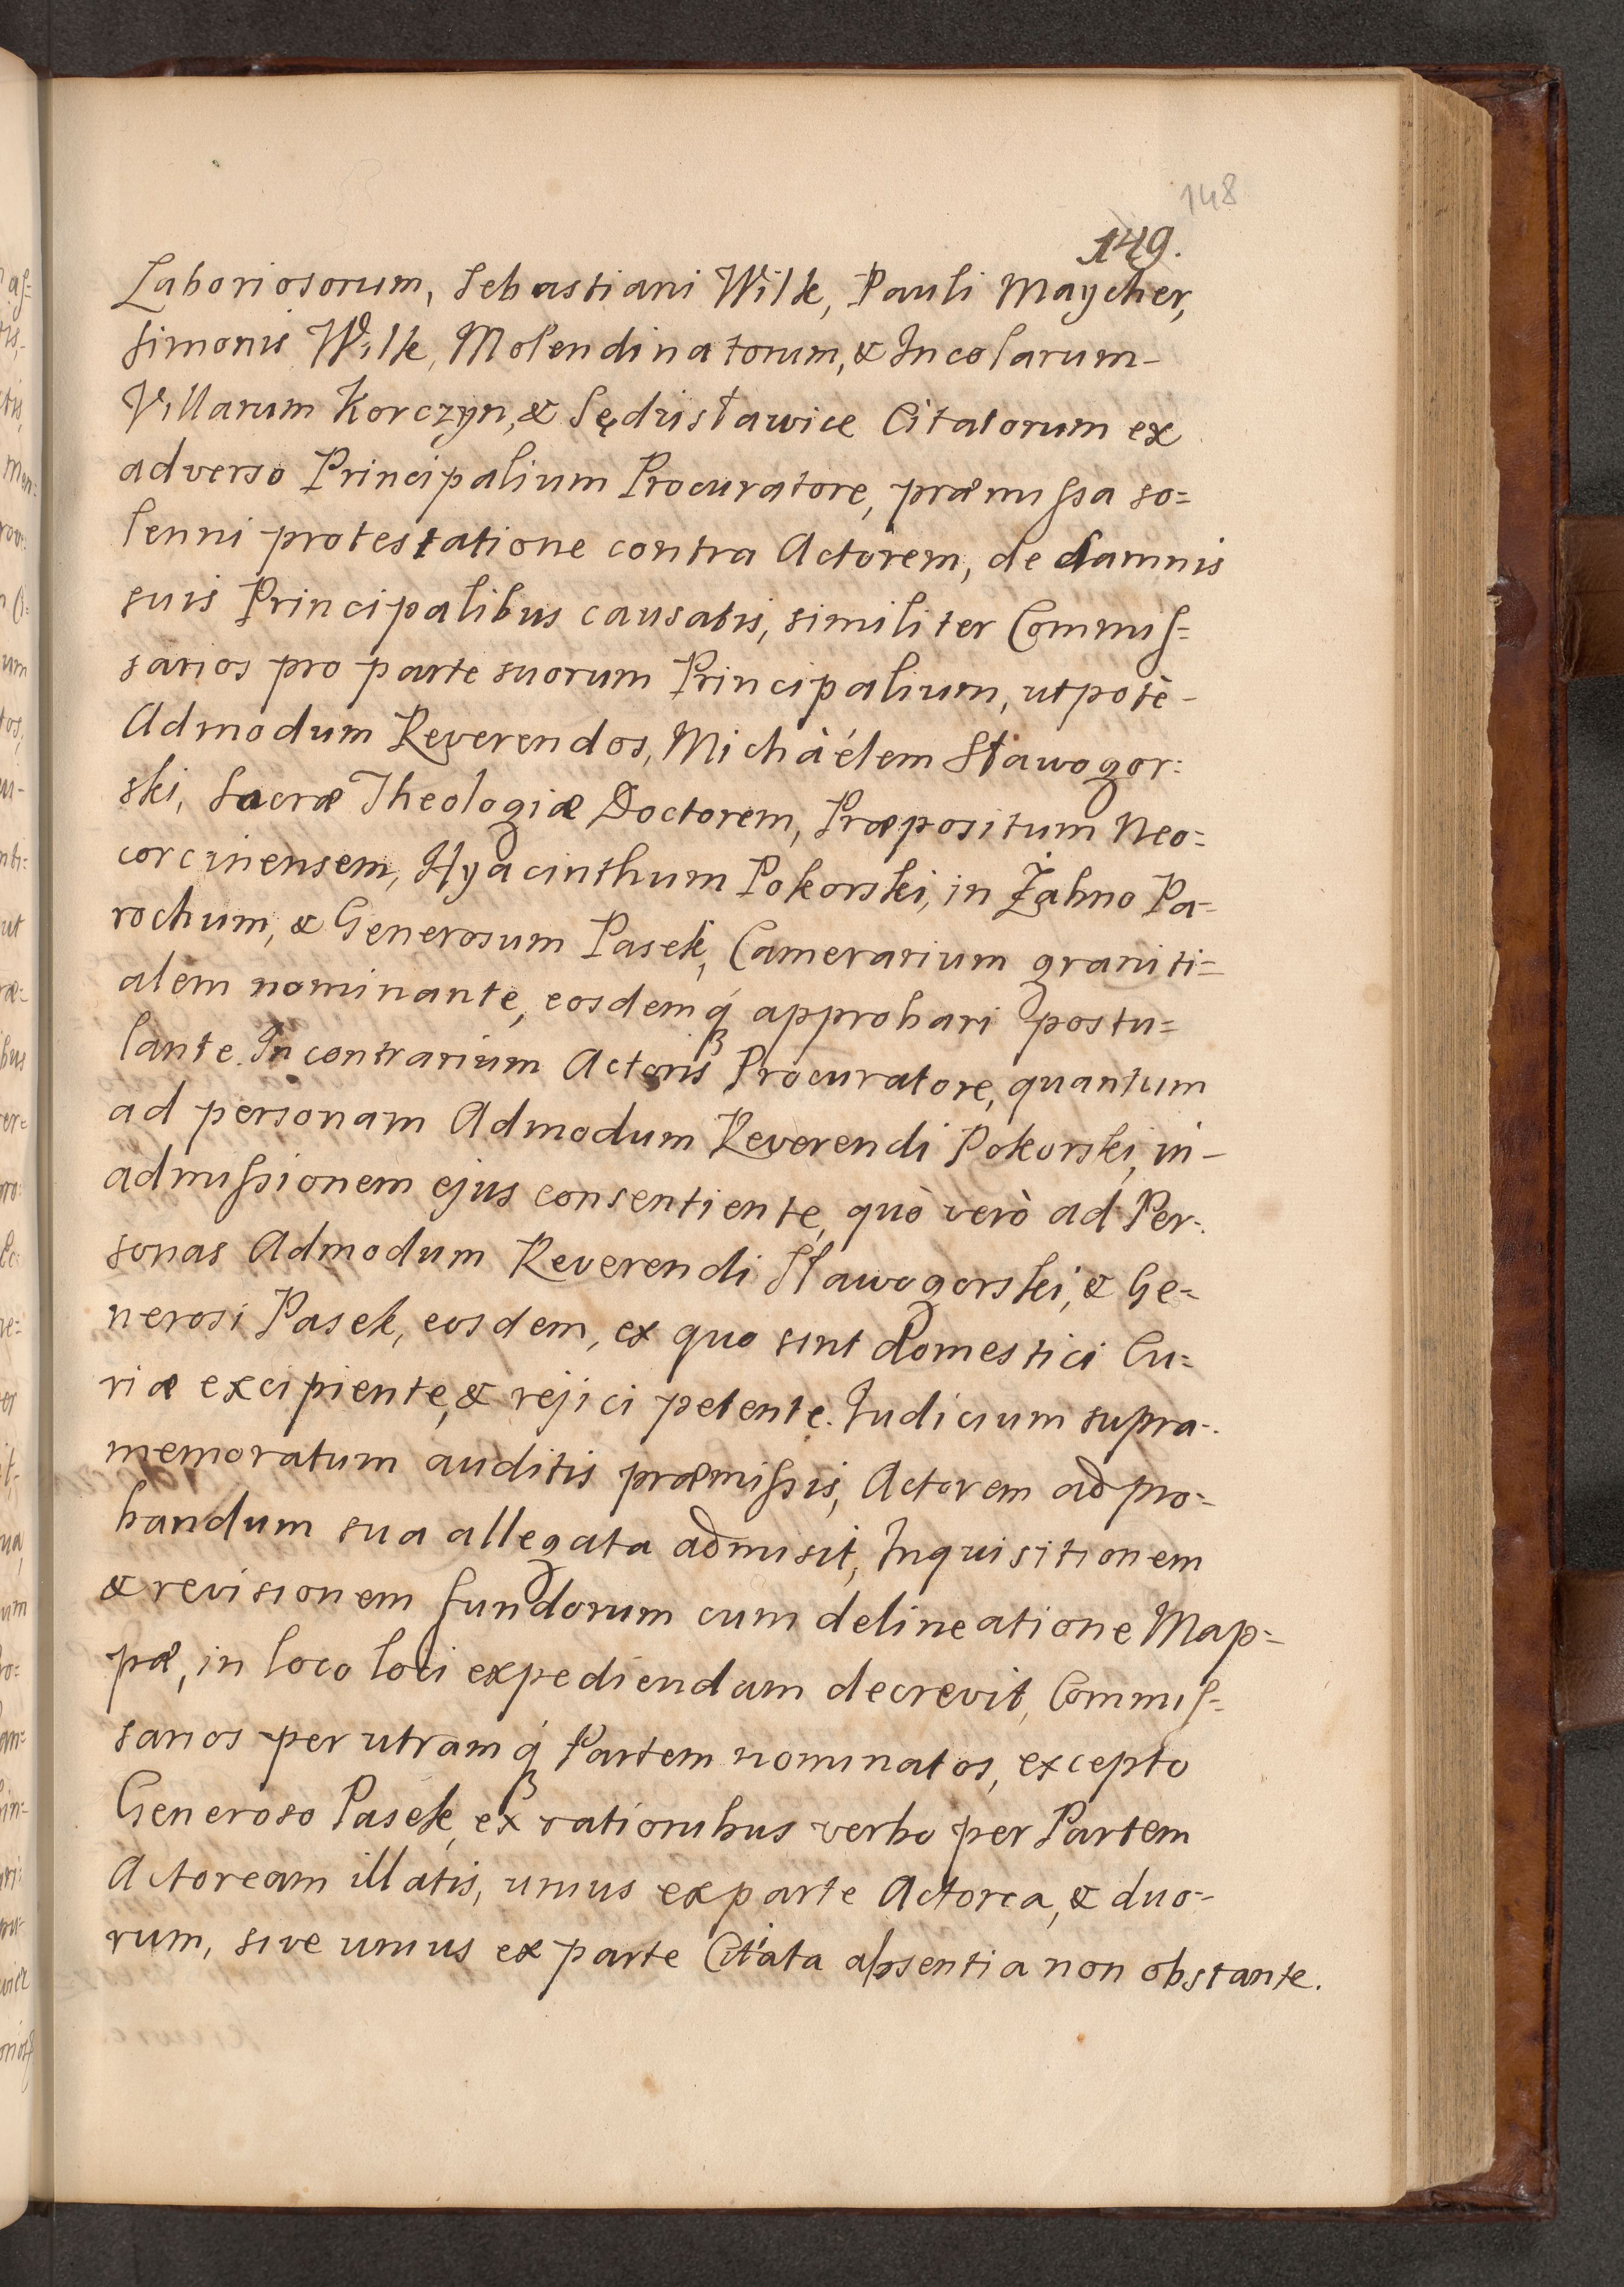 148
149.
Laboriosorum, Sebastiani Wilk, Pauli Maycher,
Simonis Wilk, Molendinatorum, & Incolarum-
Villarum Korczyn, & Sędzisławice Citatorum ex
adverso Principalium Procuratore, præmissa so=
lenni protestatione contra Actorem, de damnis
suis Principalibus causatis, similiter Commis=
sarios pro parte suorum Principalium, utpotè-
Admodum Reverendos, Michàélem Sławogor:
ski, Sacræ Theologiæ Doctorem, Præpositum Neo=
corcinensem, Hyacinthum Pokorski, in Żabno Pa=
rochum, & Generosum Pasek, Camerarium graniti=
alem nominante, eosdemq́ approbari postu=
lante. In contrarium Actoris Procuratore, quantum
ad personam Admodum Reverendi Pokorski, in-
admissionem ejus consentiente, quò verò ad Per=
sonas Admodum Reverendi Sławogorski, & Ge=
nerosi Pasek, eosdem, ex quo sint domestici Cu=
riæ excipiente, & rejici petente. Iudicium supra-
memoratum auditis præmissis, Actorem ad pro=
bandum sua allegata admisit, Inquisitionem
& revisionem fundorum cum delineatione Map=
pæ, in loco loci expediendam decrevit, Commis=
sarios per utramq́ Partem nominatos, excepto
Generoso Pasek, ex rationibus verbo per Partem
Actoream illatis, unius ex parte Actorea, & duo-
rum, sive unius ex parte Citata absentia non obstante.